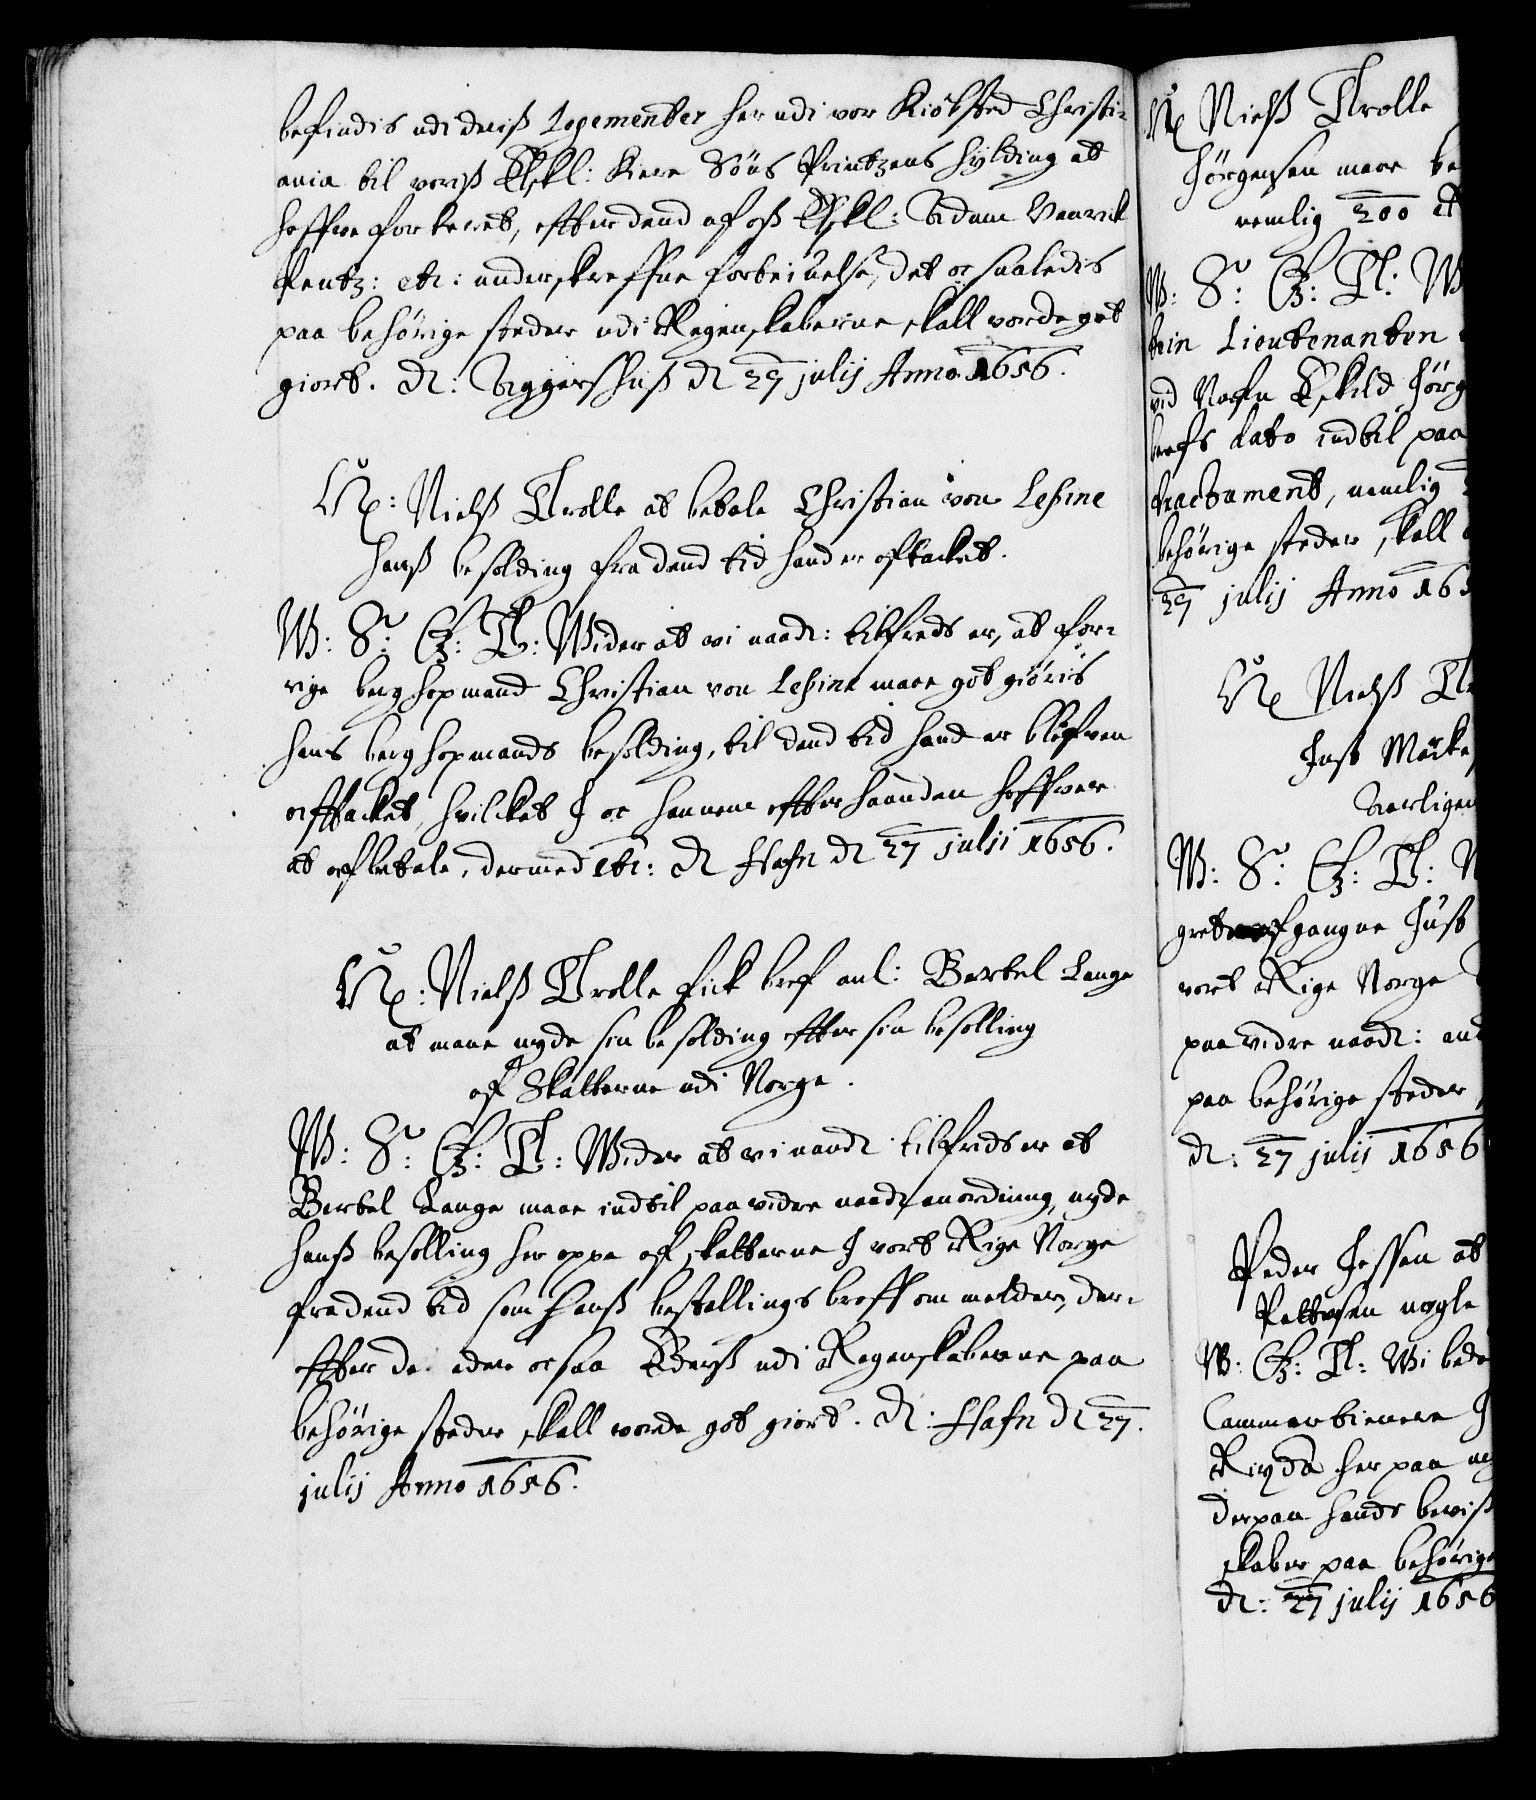 befindis udi deris Logementer her udi vor Kiöbsted Christi-
ania til voris Elskl: Kiere Söns Printzens hylding at
haffue forteret, efter dend af oss Elskl: Adam Vanvel
Rentz: etc: underskreffne forteinelse, det oc saaledis
paa behörige steder udi Regenskaberne skall vorde got
giort. D: Aggershuss d 27 julij Anno 1656.
Nielss Trolle at betale Christian von Lessine
hanss besolding fra dend tid hand er aftacket.
W: S: G: T: Wider at vi naad: tilfreds er, at for-
rige berghopmand Christian von Lessine maae got giöris
hans berghopmands besolding, til dend tid hand er blefven
afftacket, hvilcket I oc hannem efterhaanden haffver
at afbetale, dermed etc: D Hafn d 27 julij 1656.
Nielss Trolle fick bref anl: Bertel Lange
at maae nyde sin besolding efter sin bestilling
af Skatterne udi Norge.
W: S: G: T: Wider at vi naad: tilfreds er at
Bertel Lange maae indtil paa vidre naad: anordning, nyde
hanss besolling her oppe af skatterne I vort Rige Norge
fra dend tid som hanss bestallings breff om melder, der-
effter de eder ocsaa Eders udi Regenskaberne paa
behörige steder skall vorde got giort. D: Hafn d 27.
julij Anno 1656.
Nielss Trolle
Jörgensen maae be
nemlig 200
W: S: G: T: W
tein Lieutenanten
vid Nafn Eskild Jörg
brefs dato indtil paa
tractament, nemlig
behörige steder skall
27 julij Anno 165
Nielss Tr
Just Möcke
Aarligen
W: S: G: T: W
afgangne Just
vort Rige Norge
paa vidre naad: an
paa behörige steder
d: 27 julij 1656
Peder Jessen at
Pettersen nogle
W: G: T: Wi bede
Cammertienere J
her paa
derpaa hands beviss
skaber paa behörige
d: 27 julij 1656